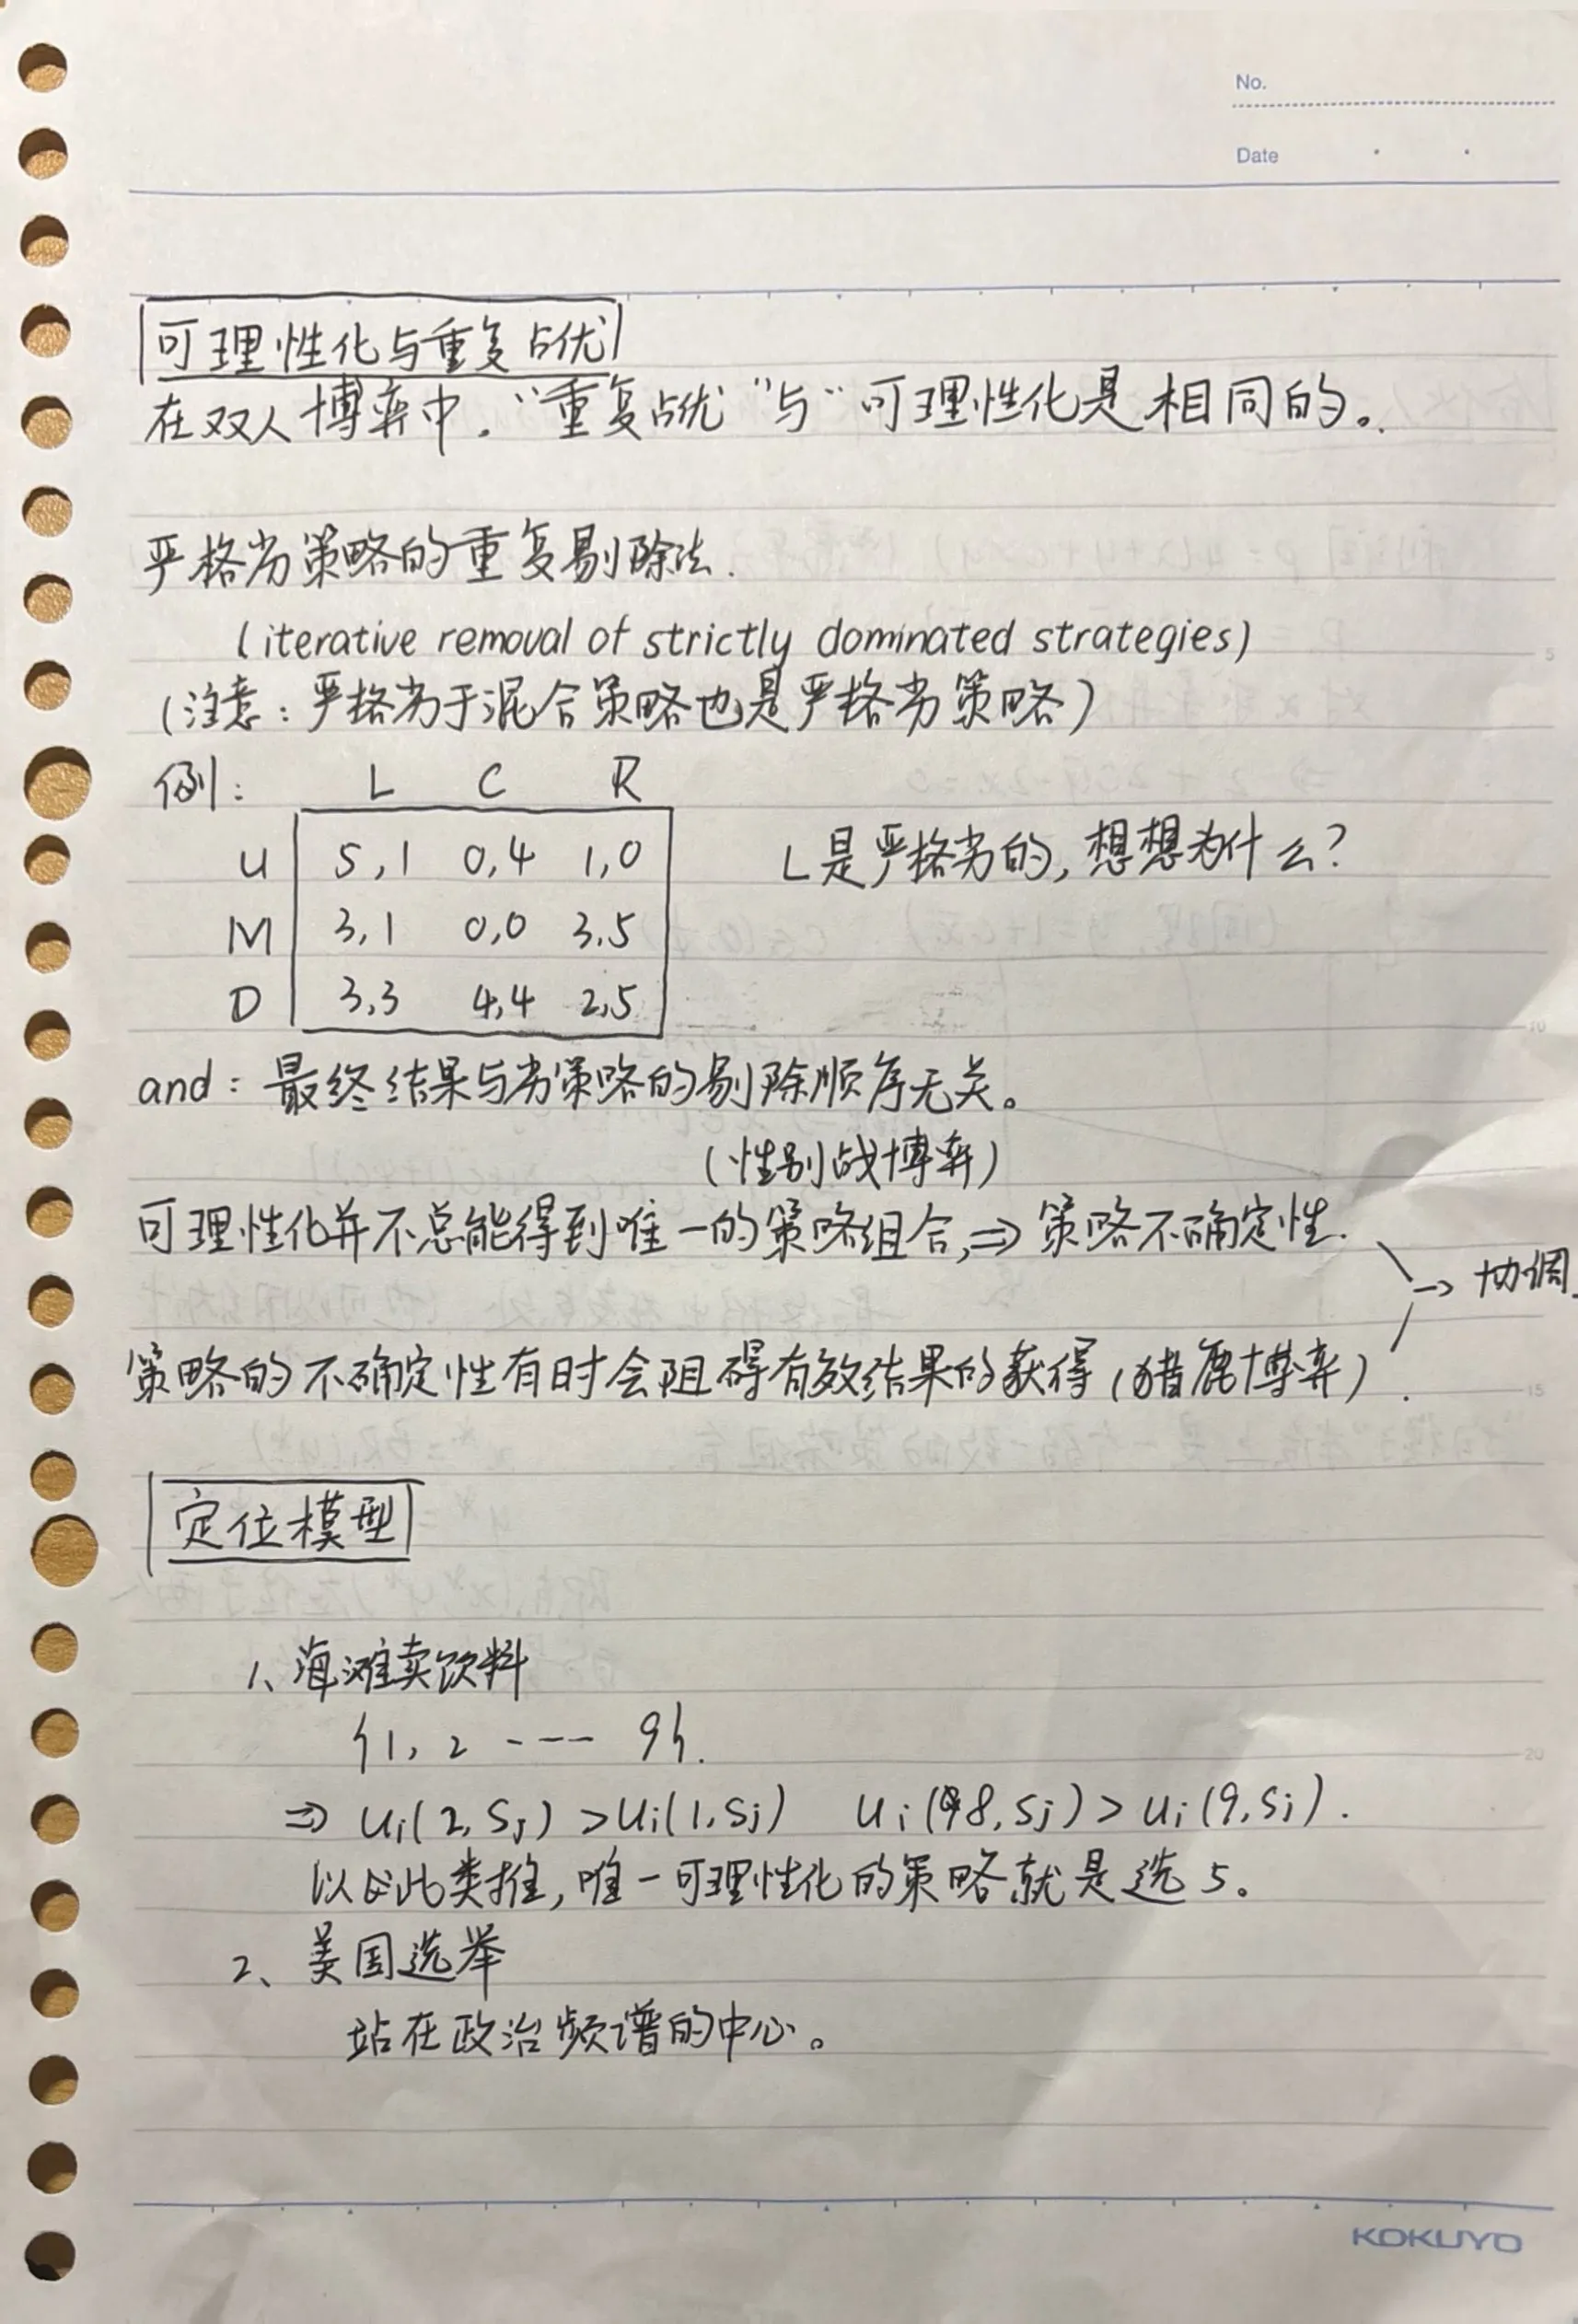 No.
Date
可理性化与重复占优
在双人博弈中，“重复占优”与“可理性化是相同的。
严格劣策略的重复剔除法.
(iterative removal of strictly dominated strategies)
(注意：严格劣于混合策略也是严格劣策略)
例： L C R
U 5,1 0,4 1,0 L是严格劣的，想想为什么？
M 3,1 0,0 3,5
D 3,3 4,4 2,5
and：最终结果与劣策略的剔除顺序无关。
(性别战博弈)
可理性化并不总能得到唯一的策略组合,⇒ 策略不确定性.
→ 协调.
策略的不确定性有时会阻碍有效结果的获得（猎鹿博弈）.
定位模型
1、海滩卖饮料
{1, 2 ---- 9}.
⇒ ui(2, Sj) > ui(1, Sj) ui(8, Sj) > ui(9, Sj).
以此类推，唯一可理性化的策略就是选5。
2、美国选举
站在政治频谱的中心。
5
10
15
20
KOKUYO